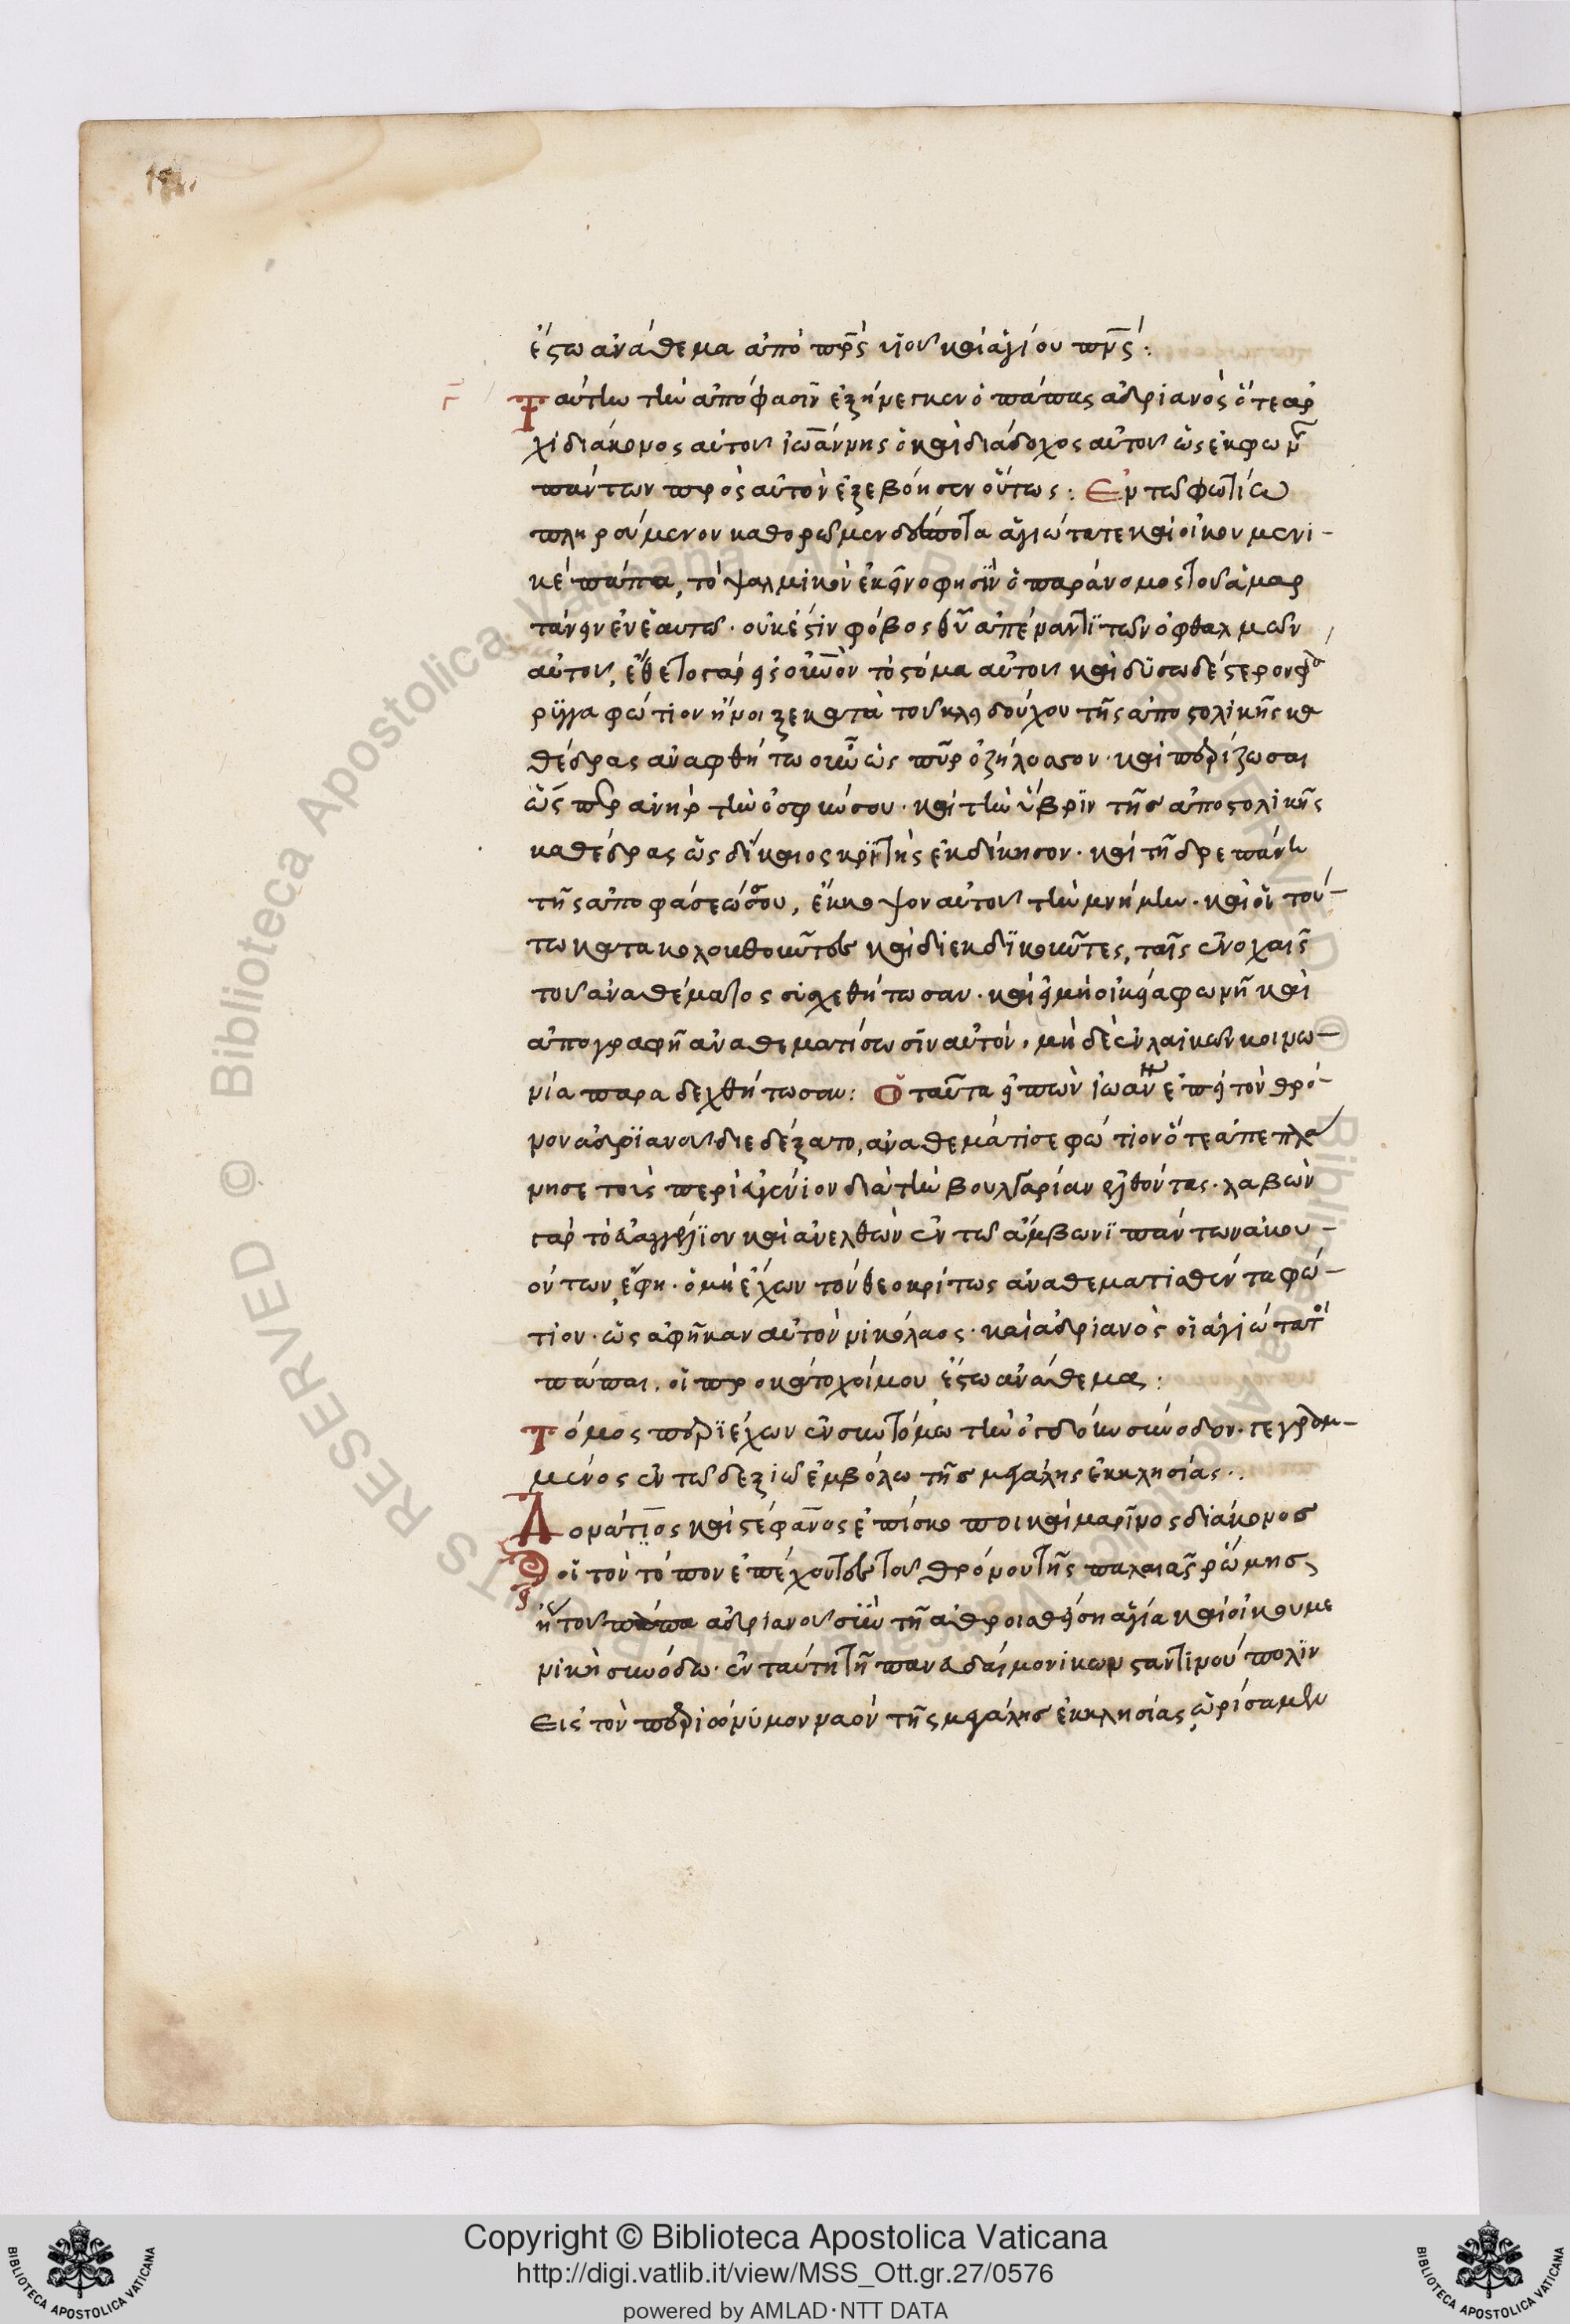 ἔστω ἀνάθεμα ἀπὸ πρς υἱοῦ καὶ ἁγίου πνς:
Ταύτην τὴν ἀπόφασιν ἐξήνεγκεν ὁ πάπας ἀδριανὸς ὅ τε ἀρ
χιδιάκονος αὐτοῦ ἰωάννης ὁ καὶ διάδοχος αὐτοῦ ὡς ἐκ φων
πάντων πρὸς αὐτὸν ἐξεβόησεν οὕτως: Ἐν τῶ φωτίω
πληρούμενον καθορῶμεν δέσποτα ἁγιώτατε καὶ οἰκουμενι-
κὲ πάπα, τὸ ψαλμικὸν ἐκεῖνο φησὶν ὁ παράνομος τοῦ ἁμαρ
τάνειν ἐν ἑαυτῶ· οὐκ ἔστιν φόβος θυ ἀπέναντι τῶν ὀφθαλμῶν
αὐτοῦ, ἔθετο γὰρ εἰς οὐνον τὸ στόμα αὐτοῦ καὶ δυσωδέστερον φά
ρυγγα φώτιον ἤνοιξε κατὰ τοῦ κλειδούχου τῆς ἀποστολικῆς κα
θέδρας ἀναφθήτω οὖν ὡς πῦρ ὁ ζῆλός σου· καὶ περίζωσαι
ὥσπερ ἀνὴρ τὴν ὀσφύν σου· καὶ τὴν ὕβριν τῆς ἀποστολικῆς
καθέδρας ὡς δίκαιος κριτὴς ἐκδίκησον· καὶ τῆ δρεπάνω
τῆς ἀποφάσεώς σου, ἔκκοψον αὐτοῦ τὴν μνήμην· καὶ οἱ τού-
τω κατακολουθοῦντες καὶ διεκδικοῦντες, ταῖς ἐνοχαῖς
τοῦ ἀναθέματος συσχεθήτωσαν· καὶ εἰ μὴ οἰκεία φωνῆ καὶ
ἀπογραφῆ ἀναθεματίσωσιν αὐτόν, μὴ δὲ ἐν λαϊκῶν κοινω-
νία παραδεχθήτωσαν: Ὁ ταῦτα εἰπὼν ἰωάννης ἐπεὶ τὸν θρό-
νον ἀδριανοῦ διεδέξατο, ἀναθεμάτισε φώτιον ὅτε ἀπεπλά
νησε τοὺς περὶ εὐγένιον διὰ τὴν βουλγαρίαν ἐλθόντας· λαβὼν
γὰρ τὸ εὐαγγέλιον καὶ ἀνελθὼν ἐν τῶ ἄμβωνι πάντων ἀκου-
όντων, ἔφη· ὁ μὴ ἔχων τὸν θεοκρίτως ἀναθεματισθέντα φώ-
τιον· ὡς ἀφῆκαν αὐτὸν νικόλαος· καὶ ἀδριανὸς οἱ ἁγιώτατοι
πάπαι. οἱ προκάτοχοί μου ἔστω ἀνάθεμα:
Τόμος περιέχων ἐν συντόμω τὴν ὀγδόην σύνοδον· γεγραμ-
μένος ἐν τῶ δεξιῶ ἐμβόλω τῆς μεγάλης ἐκκλησίας·.
Δομάτιος καὶ στέφανος ἐπίσκοποι καὶ μαρῖνος διάκονος
οἱ τὸν τόπον ἐπέχοντες τοῦ θρόνου τῆς παλαιᾶς ῥώμης
ἤτοι πάπα ἀδριανοῦ σὺν τῆ ἀθροισθείση ἁγία καὶ οἰκουμε
νικῆ συνόδω· ἐν ταύτη τῆ πανευδαίμονι κωνσταντίνου πόλιν
Εἰς τὸν περιώνυμον ναὸν τῆς μεγάλης ἐκκλησίας, ὡρίσαμεν
Copyright © Biblioteca Apostolica Vaticana
http://digi.vatlib.it/view/MSS_Ott.gr.27/0576
powered by AMLAD·NTT DATA